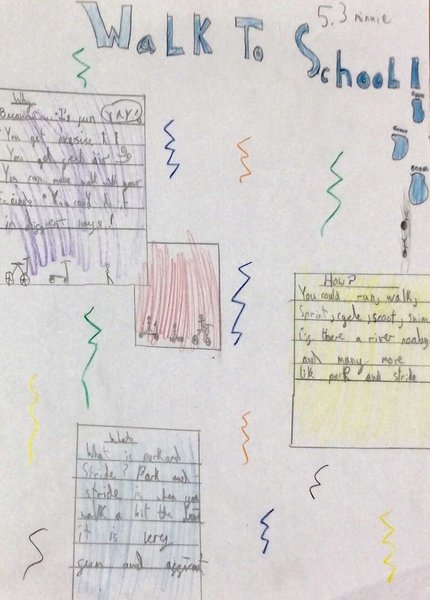 WALK To School!
5.3 minnie
Why
Because... It's fun YAY!
You get exercise!
You get fresh air
You can
You could do it
in different ways!
How?
You could run, walk,
Sprint, cycle, scoot, swim
is there a river nearby
and many more
like park and stride
What is park and
Stride? Park and
stride is when you
walk a bit the
it is very
and